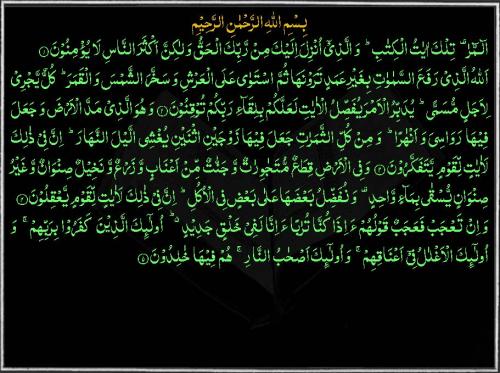 بِسْمِ اللهِ الرَّحْمٰنِ الرَّحِيْمِ
الٓـمّٓرٰ ۚ تِلْكَ اٰيٰتُ الْكِتٰبِ ؕ وَ الَّذِيْۤ اُنْزِلَ اِلَيْكَ مِنْ رَّبِّكَ الْحَقُّ وَ لٰكِنَّ اَكْثَرَ النَّاسِ لَا يُؤْمِنُوْنَ ۝۱
اَللهُ الَّذِيْ رَفَعَ السَّمٰوٰتِ بِغَيْرِ عَمَدٍ تَرَوْنَهَا ثُمَّ اسْتَوٰى عَلَى الْعَرْشِ وَ سَخَّرَ الشَّمْسَ وَ الْقَمَرَ ؕ كُلٌّ يَّجْرِيْ
لِاَجَلٍ مُّسَمًّى ؕ يُدَبِّرُ الْاَمْرَ يُفَصِّلُ الْاٰيٰتِ لَعَلَّكُمْ بِلِقَآءِ رَبِّكُمْ تُوْقِنُوْنَ ۝۲ وَ هُوَ الَّذِيْ مَدَّ الْاَرْضَ وَ جَعَلَ
فِيْهَا رَوَاسِيَ وَ اَنْهٰرًا ؕ وَ مِنْ كُلِّ الثَّمَرٰتِ جَعَلَ فِيْهَا زَوْجَيْنِ اثْنَيْنِ يُغْشِي الَّيْلَ النَّهَارَ ؕ اِنَّ فِيْ ذٰلِكَ
لَاٰيٰتٍ لِّقَوْمٍ يَّتَفَكَّرُوْنَ ۝۳ وَ فِي الْاَرْضِ قِطَعٌ مُّتَجٰوِرٰتٌ وَّ جَنّٰتٌ مِّنْ اَعْنَابٍ وَّ زَرْعٌ وَّ نَخِيْلٌ صِنْوَانٌ وَّ غَيْرُ
صِنْوَانٍ يُّسْقٰى بِمَآءٍ وَّاحِدٍ ۟ وَ نُفَضِّلُ بَعْضَهَا عَلٰى بَعْضٍ فِي الْاُكُلِ ؕ اِنَّ فِيْ ذٰلِكَ لَاٰيٰتٍ لِّقَوْمٍ يَّعْقِلُوْنَ ۝۴
وَ اِنْ تَعْجَبْ فَعَجَبٌ قَوْلُهُمْ ءَاِذَا كُنَّا تُرٰبًا ءَاِنَّا لَفِيْ خَلْقٍ جَدِيْدٍ ؕ۬ اُولٰٓئِكَ الَّذِيْنَ كَفَرُوْا بِرَبِّهِمْ ۚ وَ
اُولٰٓئِكَ الْاَغْلٰلُ فِيْۤ اَعْنَاقِهِمْ ۚ وَ اُولٰٓئِكَ اَصْحٰبُ النَّارِ ۚ هُمْ فِيْهَا خٰلِدُوْنَ ۝۵